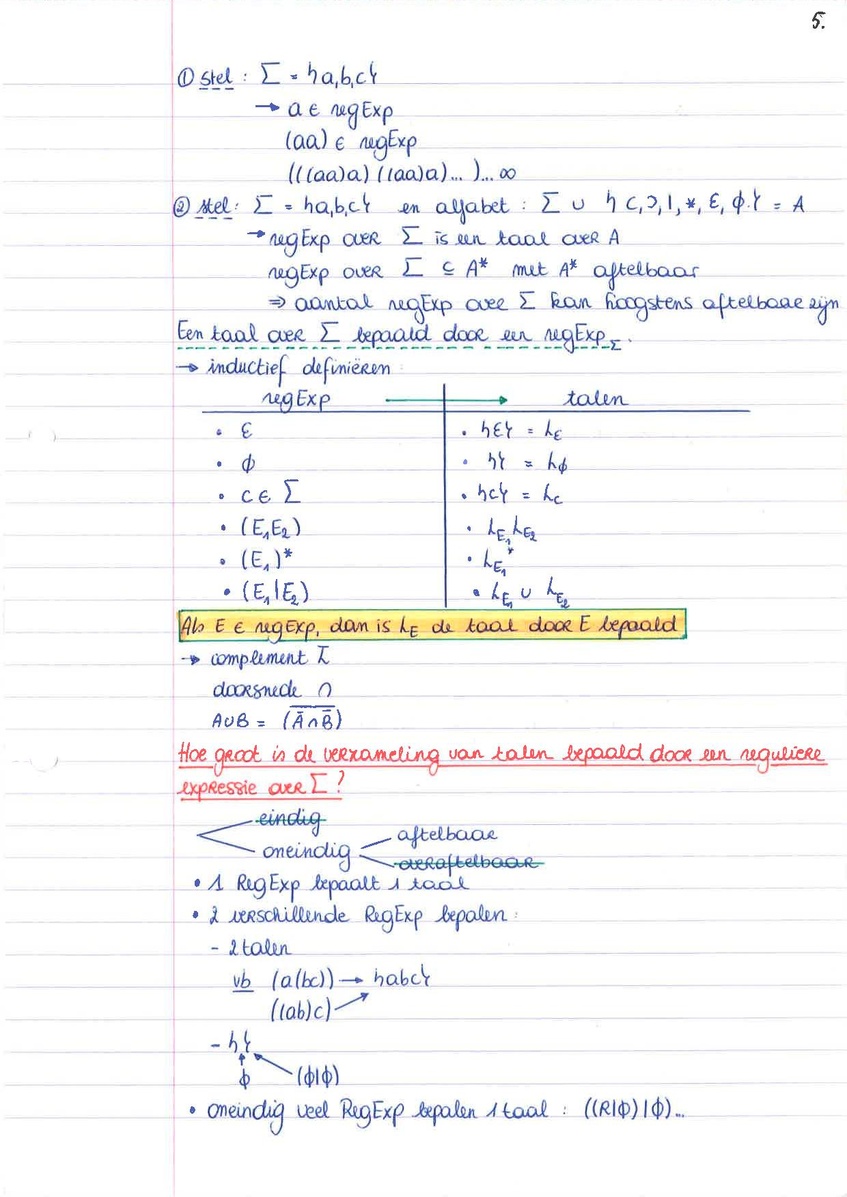 5.
① stel : Σ = {a,b,c}
→ a ∈ regExp
(aa) ∈ regExp
(((aa)a) ((aa)a)... )... ∞
② stel: Σ = {a,b,c} en alfabet : Σ ∪ { (,),|,*, ε, ϕ.} = A
→ regExp over Σ is een taal over A
regExp over Σ ⊆ A* met A* aftelbaar
⇒ aantal regExp over Σ kan hoogstens aftelbaar zijn
Een taal over Σ bepaald door een regExp_Σ.
→ inductief definiëren :
regExp → talen
• ε • {ε} = L_ε
• ϕ • {} = L_ϕ
• c ∈ Σ • {c} = L_c
• (E₁E₂) • L_E₁ L_E₂
• (E₁)* • L_E₁*
• (E₁|E₂) • L_E₁ ∪ L_E₂
Als E ∈ regExp, dan is L_E de taal door E bepaald
→ complement L̅
doorsnede ∩
A∪B = (A̅ ∩ B̅)‾
Hoe groot is de verzameling van talen bepaald door een reguliere
expressie over Σ ?
eindig
oneindig
aftelbaar
overaftelbaar
• 1 RegExp bepaalt 1 taal
• 2 verschillende RegExp bepalen :
- 2 talen
vb (a(bc)) → {abc}
((ab)c)
- {}
ϕ (ϕ|ϕ)
• oneindig veel RegExp bepalen 1 taal : ((R|ϕ)|ϕ)...